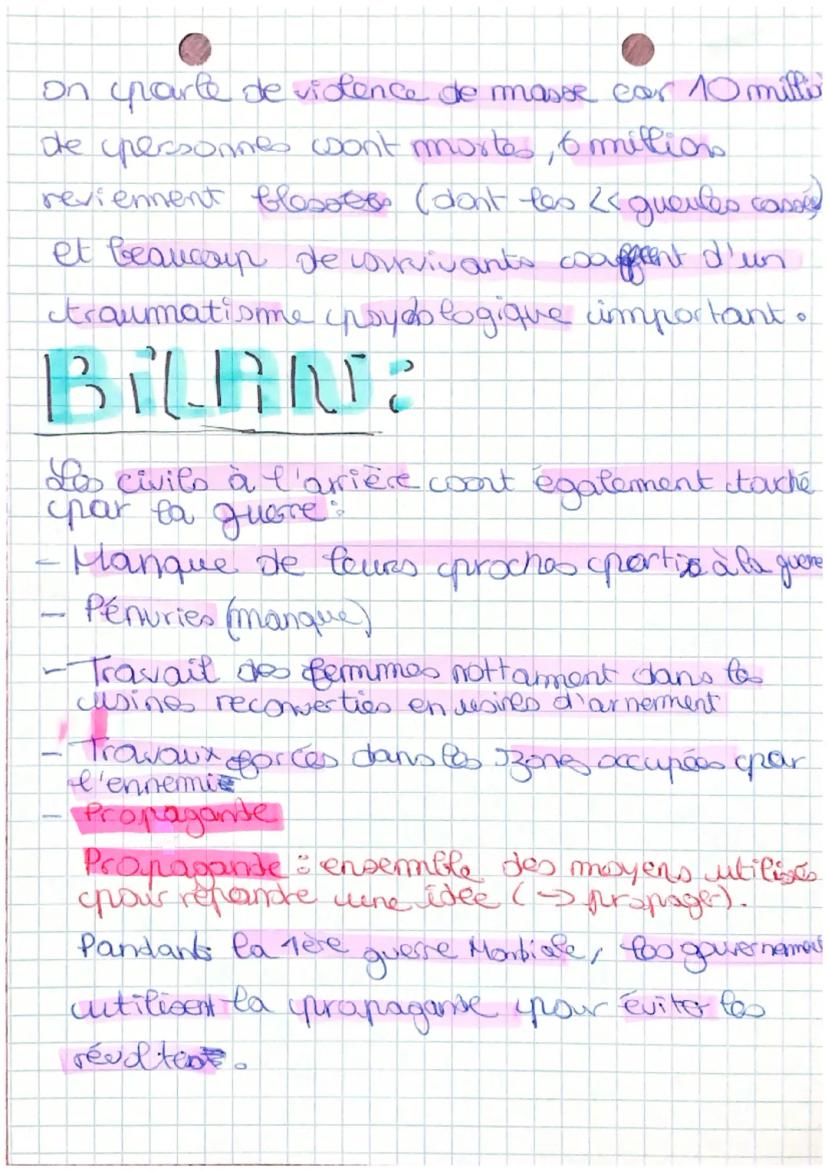 On parle de violence de masse car 10 millio
de personnes sont mortes, 6 millions
reviennent blessés (dont les << gueules cassé
et beaucoup de survivants souffrent d'un
traumatisme psycologique important.
BiLAN :
Les civils à l'arrière sont également touché
par la guerre :
- Manque de leurs proches partis à la guerre
- Pénuries (manque)
- Travail des femmes nottamment dans les
usines reconverties en usines d'armement
- Travaux forcés dans les zones occupées par
l'ennemi
- Propagande
Propagande : ensemble des moyens utilisés
pour répandre une idée (-> propager).
Pandants la 1ère guerre Mondiale, les gouvernement
utilisent la propagande pour éviter les
révoltes.